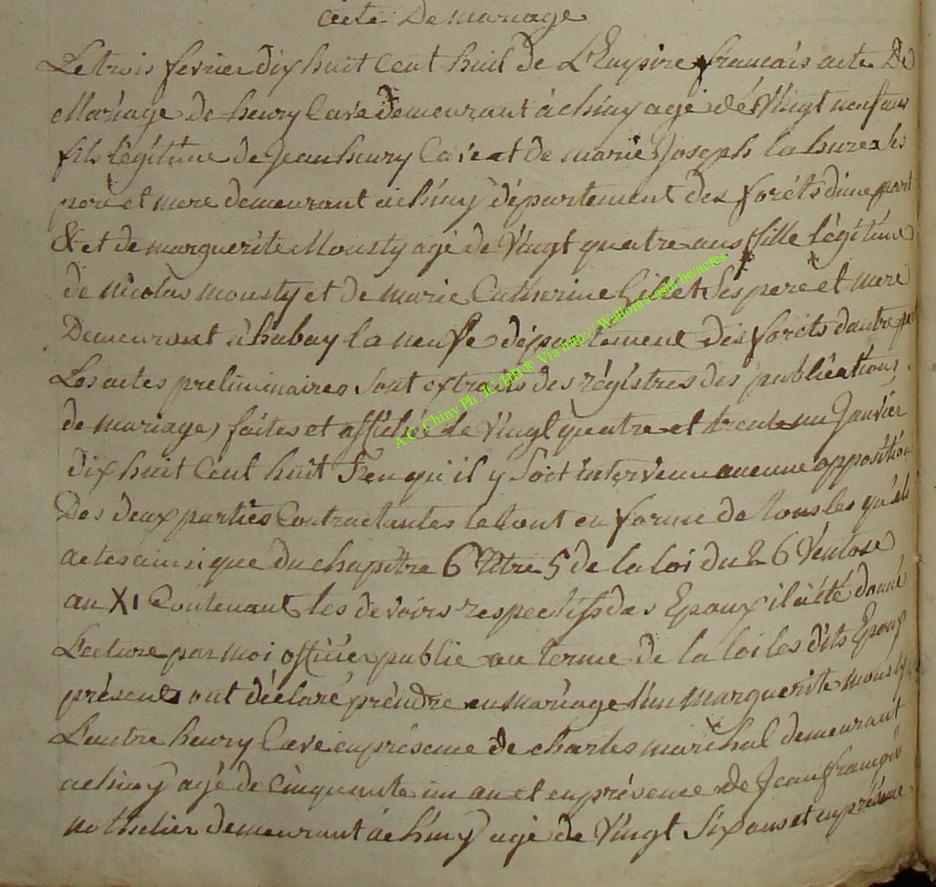 acte De mariage
Le trois fevrier dix huit Cent huit de L'Empire francais acte De
Mariage de henry Cave demeurant a chiny agé de Vingt neuf ans
fils légitime de Jean henry Cave et de marie Joseph la hure les
père et mere demeurant a chiny département des foréts d'une part
& et de marguerite Mousty agé de Vingt quatre ans fille légitime
de nicolas mousty et de marie Catherine Gilet Ses pere et mere
Demeurant a habay la neufve département des foréts dautre part
Les actes preliminaires Sont extraits des régistres des publications
de mariages faites et affichée le Vingt quatre et trente un Janvier
dix huit Cent huit San qu'il y Soit intervenu aucune opposition
Des deux parties Contractantes le tout en forme de tous les quels
actes ainsi que du chapitre 6 titre 5 de la loi du 26 Ventose
an XI Contenant les devoirs respectifs des Epoux il a été donné
Lecture par moi officier publie au terme de la loi les dits Epoux
présents ont déclaré prendre en mariage l'un marguerite mousty
L'autre henry Cave en présence de charles maréhal demeurant
a chiny agé de Cinquante un an et en présence de Jean françois
nothelier demeurant a chiny agé de Vingt Six ans et en présence
A.C. Chiny Ph. JC/HB ® Via http://Wallonia-asbl.be/actes